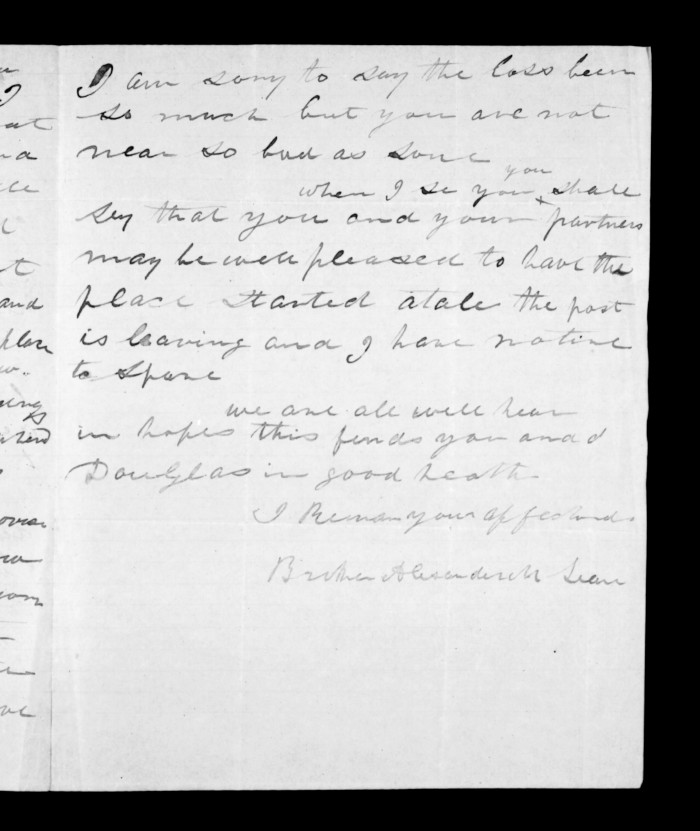 I am sorry to say the loss been
so much but you are not
near so bad as some
when I se you you shall
sey that you and your partners
may be well pleased to have the
place started atale the post
is leaving and I have notime
to spare
we are all well hear
in hopes this finds you and
Douglas in good heath
I Remain your affectionate
Brother Alexander McLean
and
place